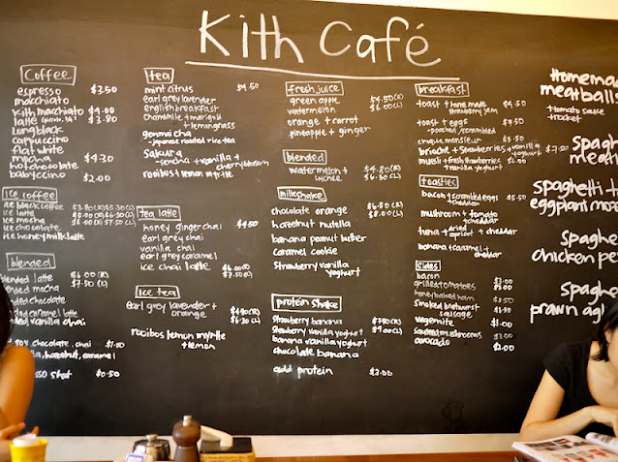 Kith Café
Coffee
espresso $3.50
macchiato
kith macchiato $4.00
latte $3.80
long black
cappuccino
flat white
mocha $4.30
hot chocolate
babyccino $2.00
ice coffee
ice black coffee
ice latte
ice mocha
ice chocolate
ice honey milk latte
blended
blended latte $6.00 (R)
blended mocha $7.50 (L)
chocolate
caramel latte
vanilla chai
soy, chocolate, chai
hazelnut, caramel
shot $0.50
tea
mint citrus $4.50
earl grey lavender
english breakfast
chamomile + marigold
+ lemongrass
genmaicha
- japanese roasted rice tea
Sakura
- sencha + vanilla +
cherry blossom
rooibos + lemon myrtle
tea latte
honey ginger chai $4.50
earl grey chai
vanilla chai
earl grey caramel
ice chai latte $6.00 (R)
$7.50 (L)
ice tea
earl grey lavender +
orange
rooibos lemon myrtle
+ lemon
fresh juice
green apple $4.50 (R)
watermelon $6.00 (L)
orange + carrot
pineapple + ginger
blended
watermelon + $4.80 (R)
lychee $6.30 (L)
milkshake
chocolate orange $6.50 (R)
hazelnut nutella $8.00 (L)
banana peanut butter
caramel cookie
strawberry vanilla
yoghurt
protein shake
strawberry banana
strawberry vanilla yoghurt
banana vanilla yoghurt
chocolate banana
add protein $2.00
breakfast
toast + homemade $4.50
strawberry jam
toast + eggs $7.50
- poached/scrambled
croque monsieur
brioche + strawberries + vanilla
yoghurt
muesli + fresh strawberries
+ vanilla yoghurt
toasties
bacon + scrambled eggs
+ cheddar
mushroom + tomato
+ cheddar
tuna + dried apricot +
cheddar
banana + caramel +
cheddar
sides
bacon
grilled tomatoes
honey baked ham
smoked bratwurst
sausage
vegemite $1.00
sauteed mushrooms
avocado $2.00
Homemad
meatballs
+ tomato sauce
+ rocket
spagh
meatb
spaghetti +
eggplant mo
spaghe
chicken pe
spag
prawn agl